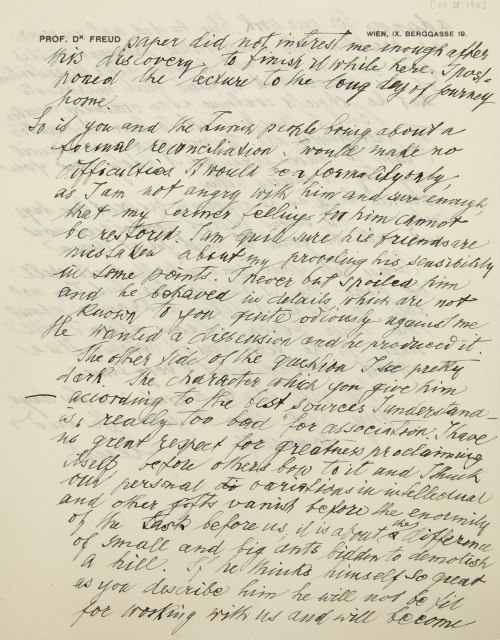 [22 IX 1912]
PROF. Dr FREUD
WIEN, IX. BERGGASSE 19.
paper did not interest me enough after
this discovery to finish it while here. I post-
poned the lecture to the long day of journey
home.
So if you and the Zurich people bring about a
formal reconciliation I would make no
difficulties. It would be a formality only,
as I am not angry with him and sure enough,
that my former feelings for him cannot
be restored. I am quite sure his friends are
mistaken about my provoking his sensibility
in some points. I never but spoiled him
and he behaved in details, which are not
known to you quite odiously against me
He wanted a discussion and he produced it.
The other side of the question I see pretty
dark. The character which you give him
— according to the best sources I understand —
is really too bad for association. I have
no great respect for greatness proclaiming
itself before others bow to it and I think
our personal variations in intellectual
and other gifts vanish before the enormity
of the task before us, it is about the difference
of small and big ants bidden to demolish
a hill. If he thinks himself so great
as you describe him he will not be fit
for working with us and will become